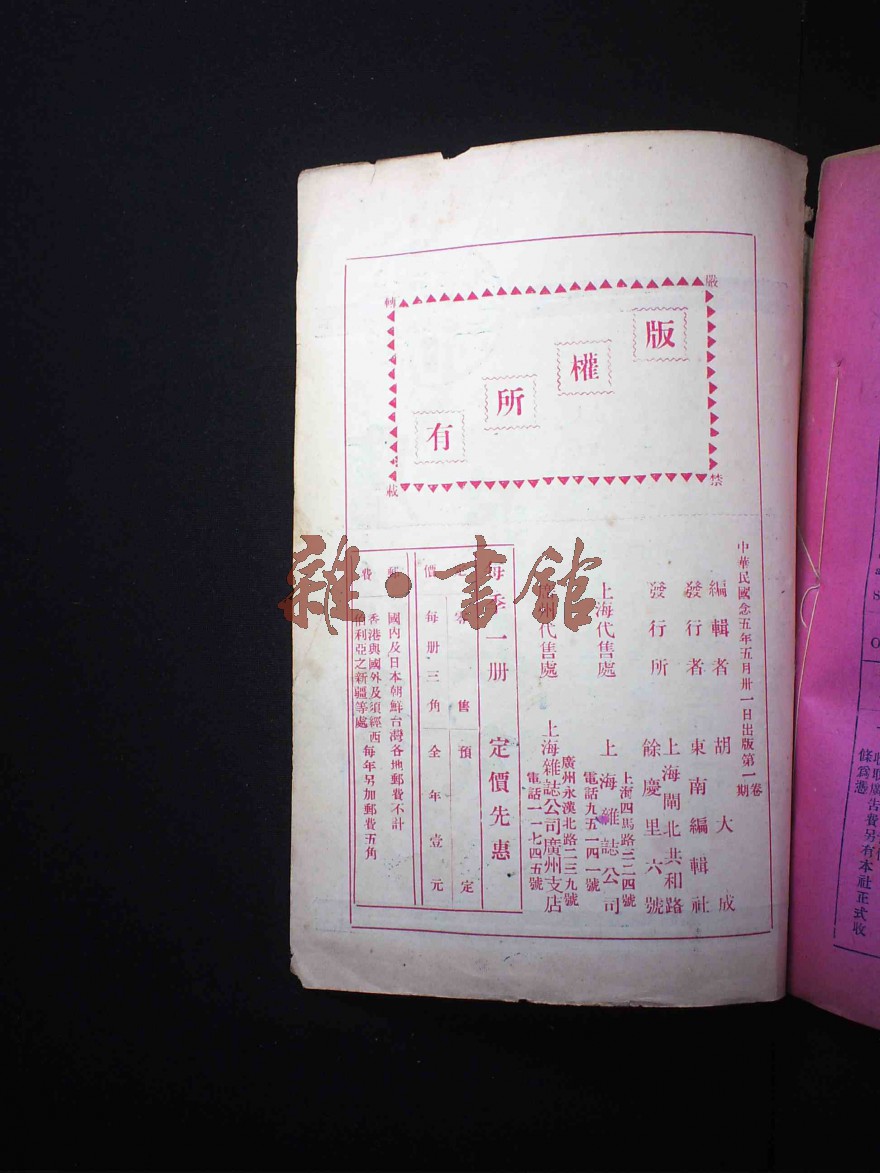 版權所有
嚴禁
轉載
中華民國念五年五月卅一日出版第一卷
期
編輯者 胡大成
發行者 東南編輯社
發行所 上海閘北共和路
餘慶里六號
上海代售處 上海雜誌公司
上海四馬路三二四號
電話九五一四一號
廣州代售處 上海雜誌公司廣州支店
廣州永漢北路二三九號
電話一一七四五號
每季一册 定價先惠
零售 預定
價 每册三角 全年壹元
郵費
國內及日本朝鮮台灣各地郵費不計
香港與國外及須經西
伯利亞之新疆等處
每年另加郵費五角
雜·書館
收取廣告費另有本社正式收
條為憑